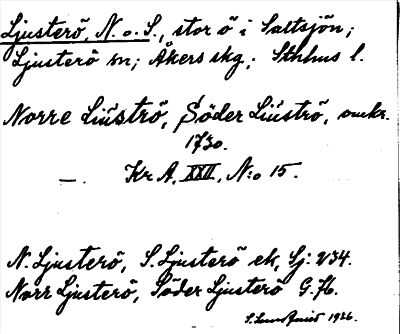 Ljusterö, N. o. S., stor ö i Saltsjön;
Ljusterö sn; Åkers skg; Sthlms l.
Norre Liüströ, Söder Liüströ, omkr.
1730.
—. Kr A, XXII, N:o 15.
N. Ljusterö, S. Ljusterö ek, Sj: 234.
Norr Ljusterö, Söder Ljusterö G. fb.
1936.